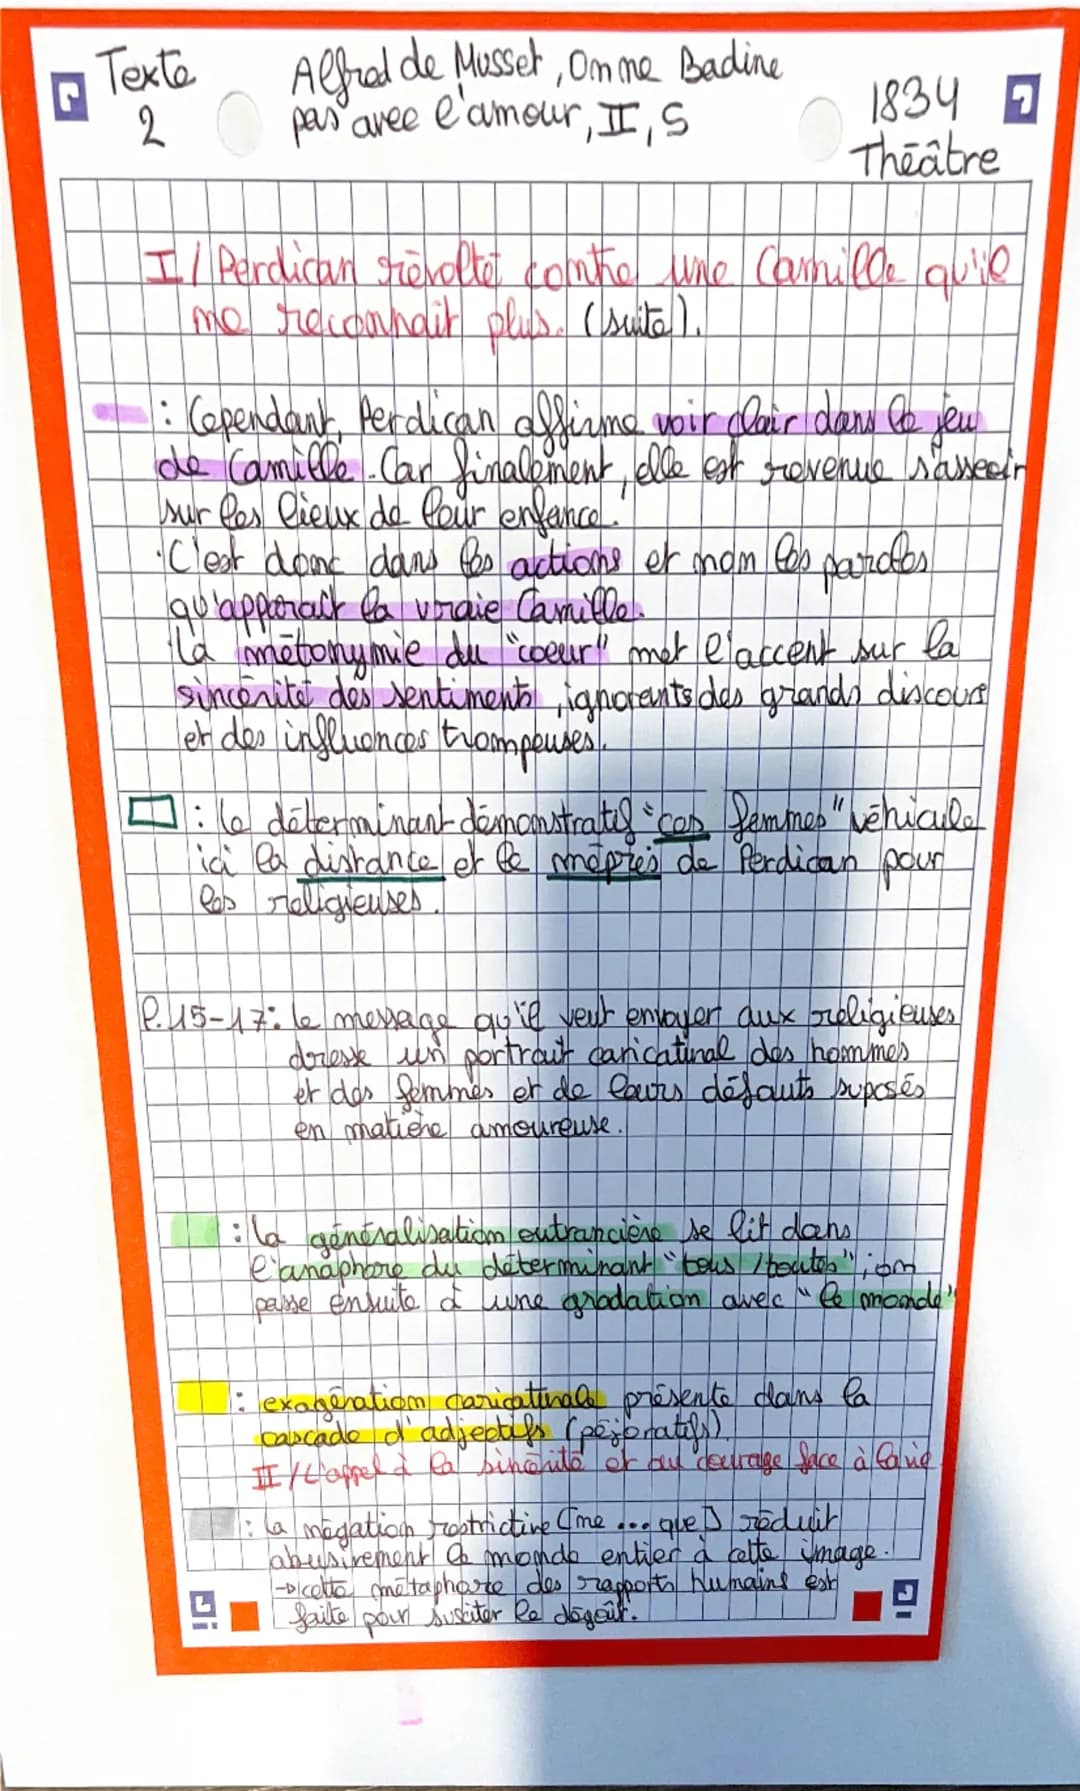 Texte 2
Alfred de Musset, On ne Badine
pas avec l'amour, II, 5
1834
Théâtre
I/ Perdican révolté contre une Camille qu'il
ne reconnait plus. (suite).
: Cependant, Perdican affirme voir clair dans le jeu
de Camille. Car finalement, elle est revenue s'asseoir
sur les lieux de leur enfance.
· C'est donc dans les actions et non les paroles
qu'apparaît la vraie Camille.
La métonymie du "coeur" met l'accent sur la
sincérité des sentiments, ignorants des grands discours
et des influences trompeuses.
: le déterminant démonstratif "ces femmes" véhicule
ici la distance et le mépris de Perdican pour
les religieuses.
l.15-17: le message qu'il veut envoyer aux religieuses
dresse un portrait caricatural des hommes
et des femmes et de leurs défauts suposés
en matière amoureuse.
: la généralisation outrancière se lit dans
l'anaphore du déterminant "tous / toutes"; on
passe ensuite à une gradation avec "le monde"
: exagération caricaturale présente dans la
cascade d'adjectifs (péjoratifs).
II/ L'appel à la sincérité et au courage face à la vie
: la négation restrictive [ne ... que] réduit
abusivement le monde entier à cette image.
→ cette métaphore des rapports humains est
faite pour susciter le dégoût.